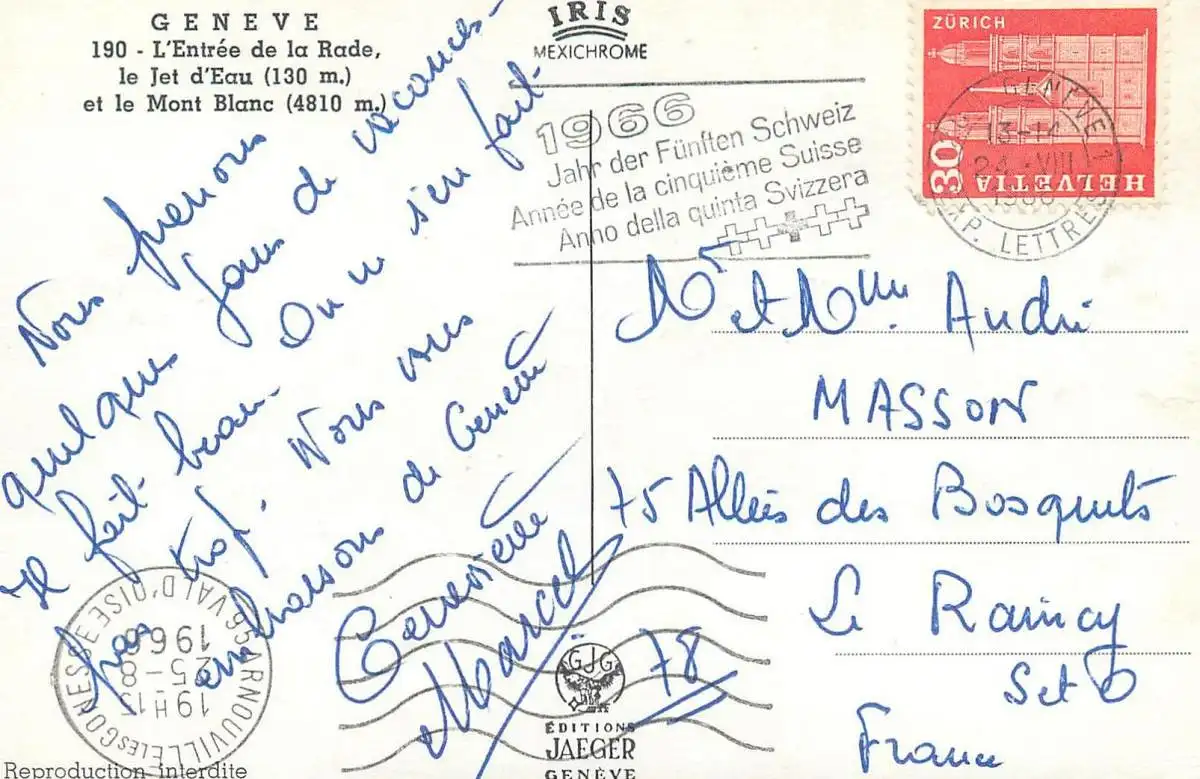 GENEVE
190 - L'Entrée de la Rade,
le Jet d'Eau (130 m.)
et le Mont Blanc (4810 m.)
IRIS
MEXICHROME
1966
Jahr der Fünften Schweiz
Année de la cinquième Suisse
Anno della quinta Svizzera
ZÜRICH
30
HELVETIA
GENÈVE 1
13-14
24.VIII
1966
EXP. LETTRES
Nous prenons
quelques jours de vacances-
Il fait beau- On n s'en fait-
pas trop. Nous vous
embrassons de Genève
Genevieve
Marcel
Mr et Mme. André
MASSON
75 Allées des Bosquets
Le Raincy
Set O
France
78
95 ARNOUVILLE LES GONESSE
VAL D'OISE
19H15
25-8
1966
GJG
ÉDITIONS
JAEGER
GENÈVE
Reproduction interdite